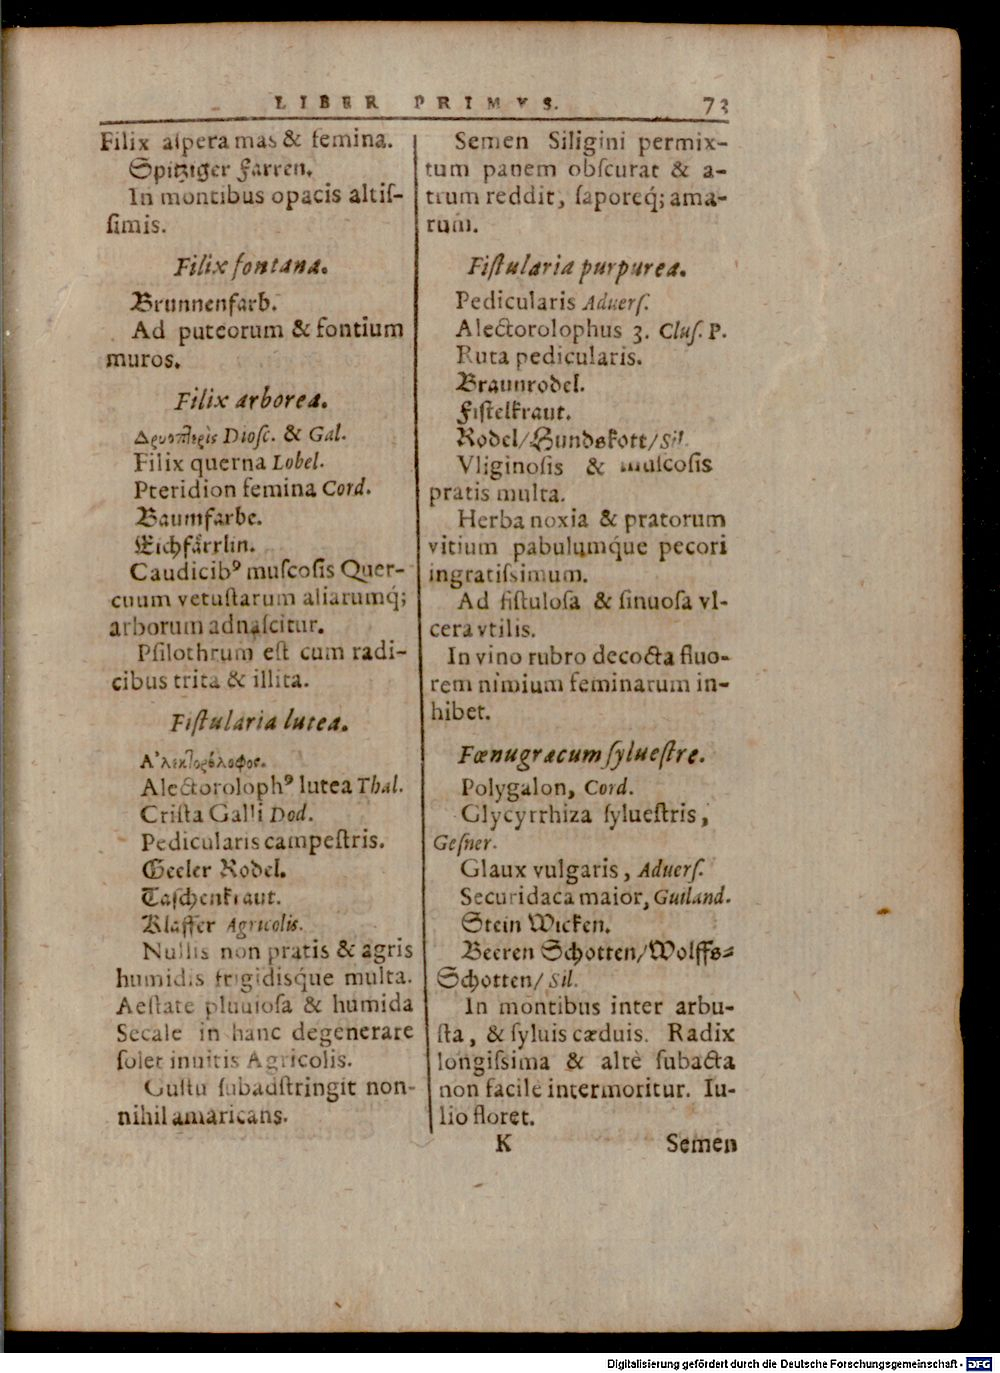 LIBER PRIMVS. 73
Filix aſpera mas & femina.
Spitziger Farren.
In montibus opacis altiſ-
ſimis.
Filix fontana.
Brunnenfarb.
Ad puteorum & fontium
muros.
Filix arborea.
Δρυοπτερὶς Dioſc. & Gal.
Filix querna Lobel.
Pteridion femina Cord.
Baumfarbe.
Eichfårrlin.
Caudicibꝰ muſcoſis Quer-
cuum vetuſtarum aliarumq́;
arborum adnaſcitur.
Pſilothrum eſt cum radi-
cibus trita & illita.
Fiſtularia lutea.
Α᾿λεκτορόλοφος.
Alectorolophꝰ lutea Thal.
Criſta Galli Dod.
Pedicularis campeſtris.
Geeler Rodel.
Taſchenkraut.
Klaffer Agricolis.
Nullis non pratis & agris
humidis frigidisq́ue multa.
Aeſtate pluuioſa & humida
Secale in hanc degenerare
ſolet inuitis Agricolis.
Guſtu ſubadſtringit non-
nihil amaricans.
Semen Siligini permix-
tum panem obſcurat & a-
trum reddit, ſaporeq́; ama-
rum.
Fiſtularia purpurea.
Pedicularis Aduerſ.
Alectorolophus 3. Cluſ. P.
Ruta pedicularis.
Braunrodel.
Fiſtelkraut.
Rodel/Hundskott/Sil.
Vliginoſis & muſcoſis
pratis multa.
Herba noxia & pratorum
vitium pabulumq́ue pecori
ingratiſsimum.
Ad fiſtuloſa & ſinuoſa vl-
cera vtilis.
In vino rubro decocta fluo-
rem nimium feminarum in-
hibet.
Fœnugræcum ſylueſtre.
Polygalon, Cord.
Glycyrrhiza ſylueſtris,
Geſner.
Glaux vulgaris, Aduerſ.
Securidaca maior, Guiland.
Stein Wicken.
Beeren Schotten/Wolffs-
Schotten/ Sil.
In montibus inter arbu-
ſta, & ſyluis cæduis. Radix
longiſsima & altè ſubacta
non facile intermoritur. Iu-
lio floret.
K Semen
Digitalisierung gefördert durch die Deutsche Forschungsgemeinschaft - DFG